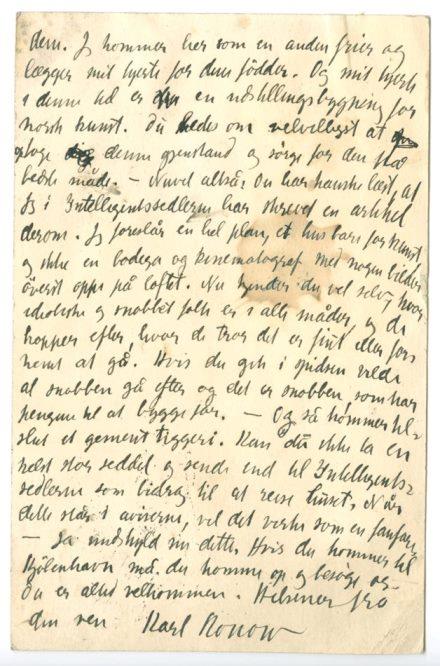 dem. Jeg kommer her som en anden frier og
lægger mit hjerte for dine fødder. Og mit hjerte
i denne tid er en udstillingsbygning for
norsk kunst. Du bedes om velvilligst at
optage denne gjenstand og sørge for den paa
bedste måde. – Nuvel altså: Du har kanske læst, at
jeg i Intelligentssedlerne har skrevet en artikel
derom. Jeg foreslår en hel plan, et hus bare for kunst
og ikke en bodega og kinematograf med nogen billeder
øverst oppe på loftet. Nu kjender du vel selv, hvor
idiotiske og snobbet folk er i alle måder, og de
hopper efter, hvor de tror det er fint eller for-
nemt at gå. Hvis du gik i spidsen vilde
al snobben gå efter og det er snobben, som har
pengene til at bygge for. – Og så kommer til-
slut et gement tiggeri. Kan du ikke ta en
næst stor seddel og sende ind til Intelligents-
sedlerne som bidrag til at reise huset. Når
dette står i aviserne, vil det virke som en fanfare
– Ja undskyld nu dette. Hvis du kommer til
Kjøbenhavn må du komme op og besøge os –
Du er altid velkommen. Hilsener fra
din ven Karl Konow